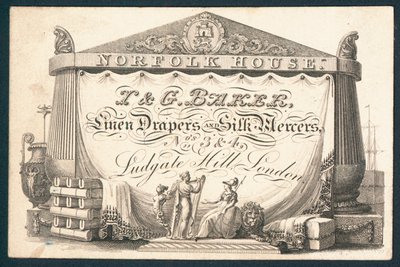 NORFOLK HOUSE.
T & G. BAKER,
Linen Drapers AND Silk Mercers,
Nos. 3 & 4,
Ludgate Hill, London